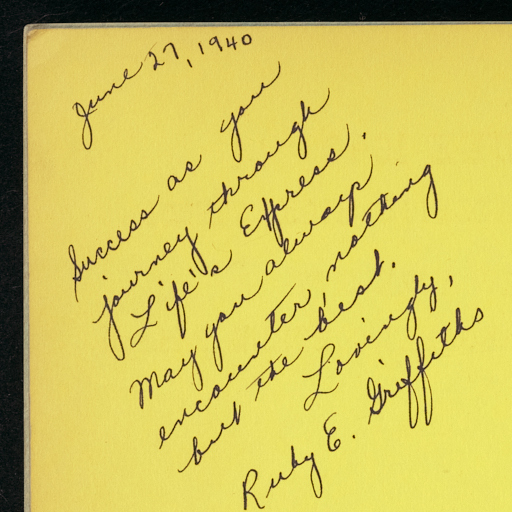 June 27, 1940
Success as you
journey through
Life's Express.
May you always
encounter, nothing
but the best.
Lovingly,
Ruby E. Griffiths